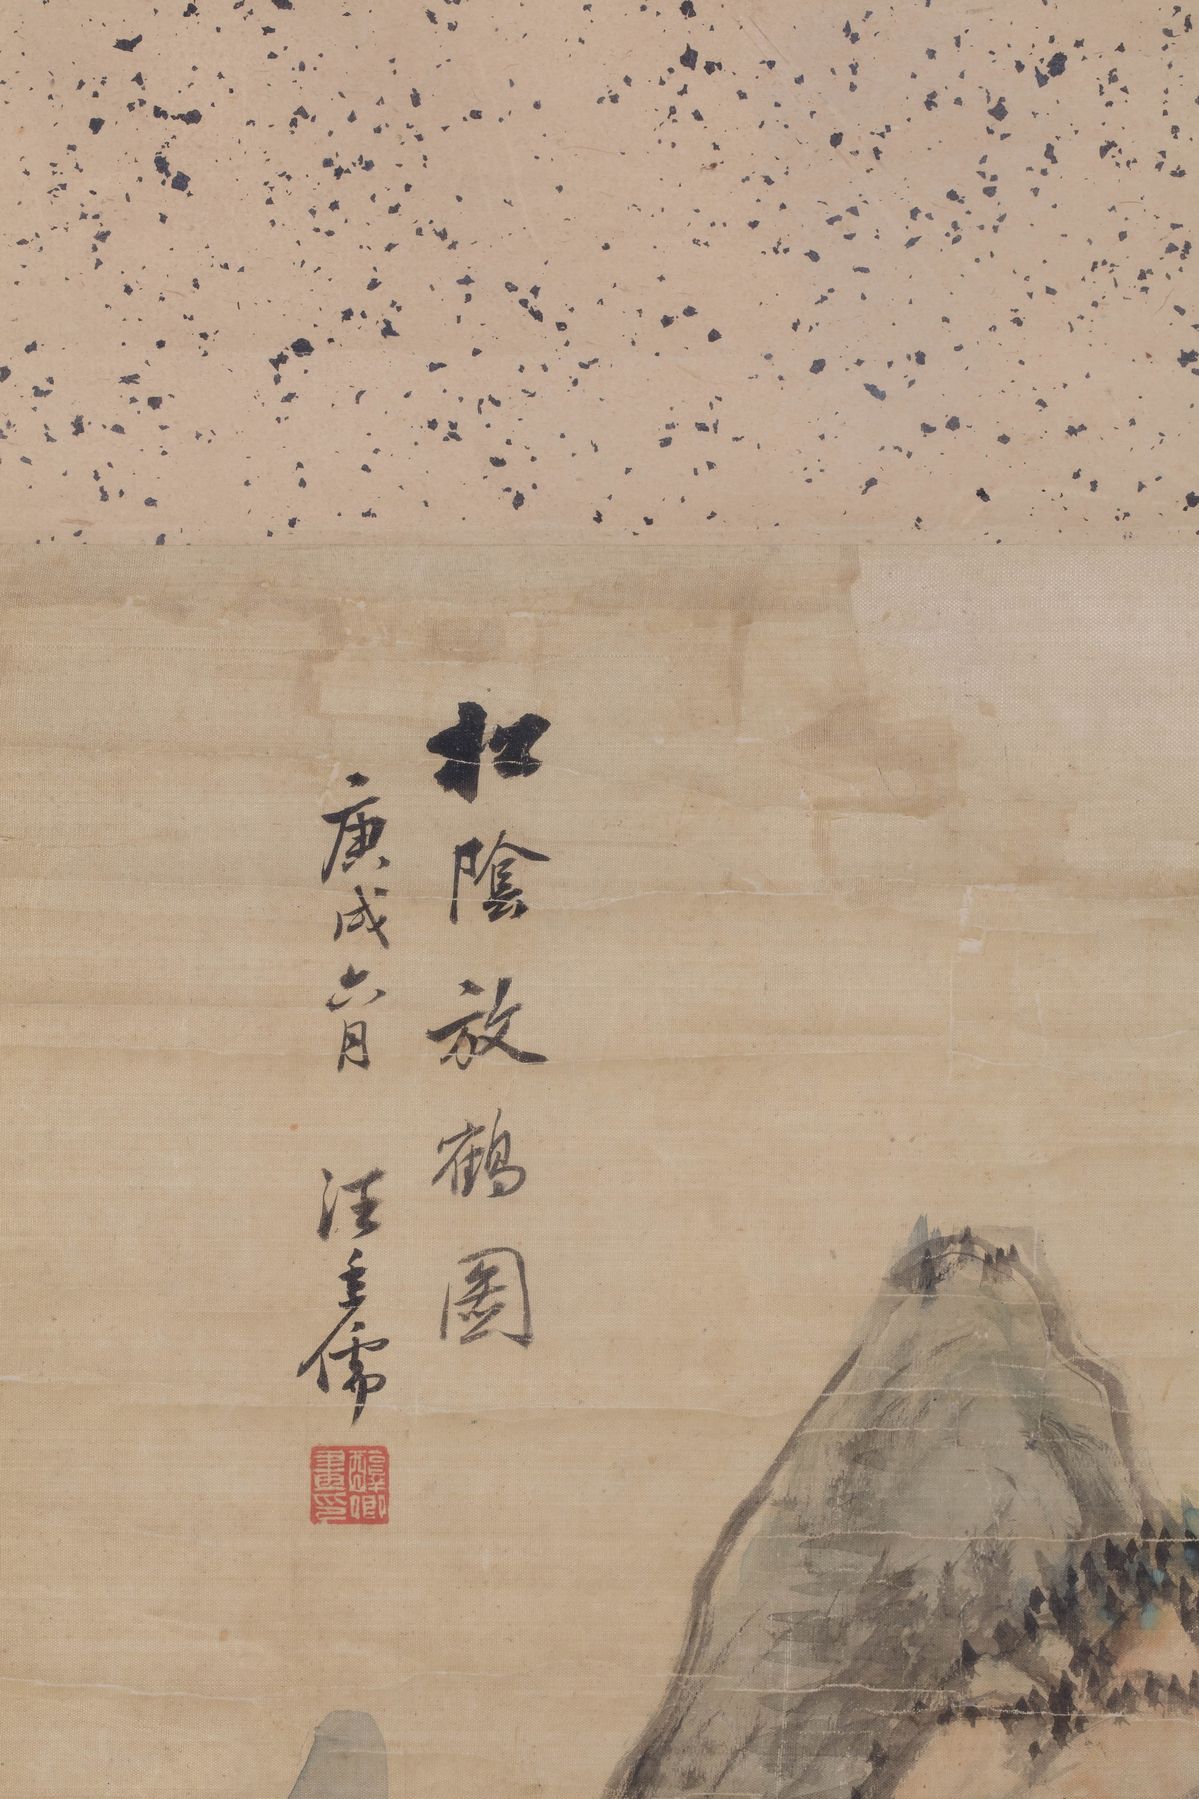 松陰放鶴圖
庚戌六月 汪圭儒